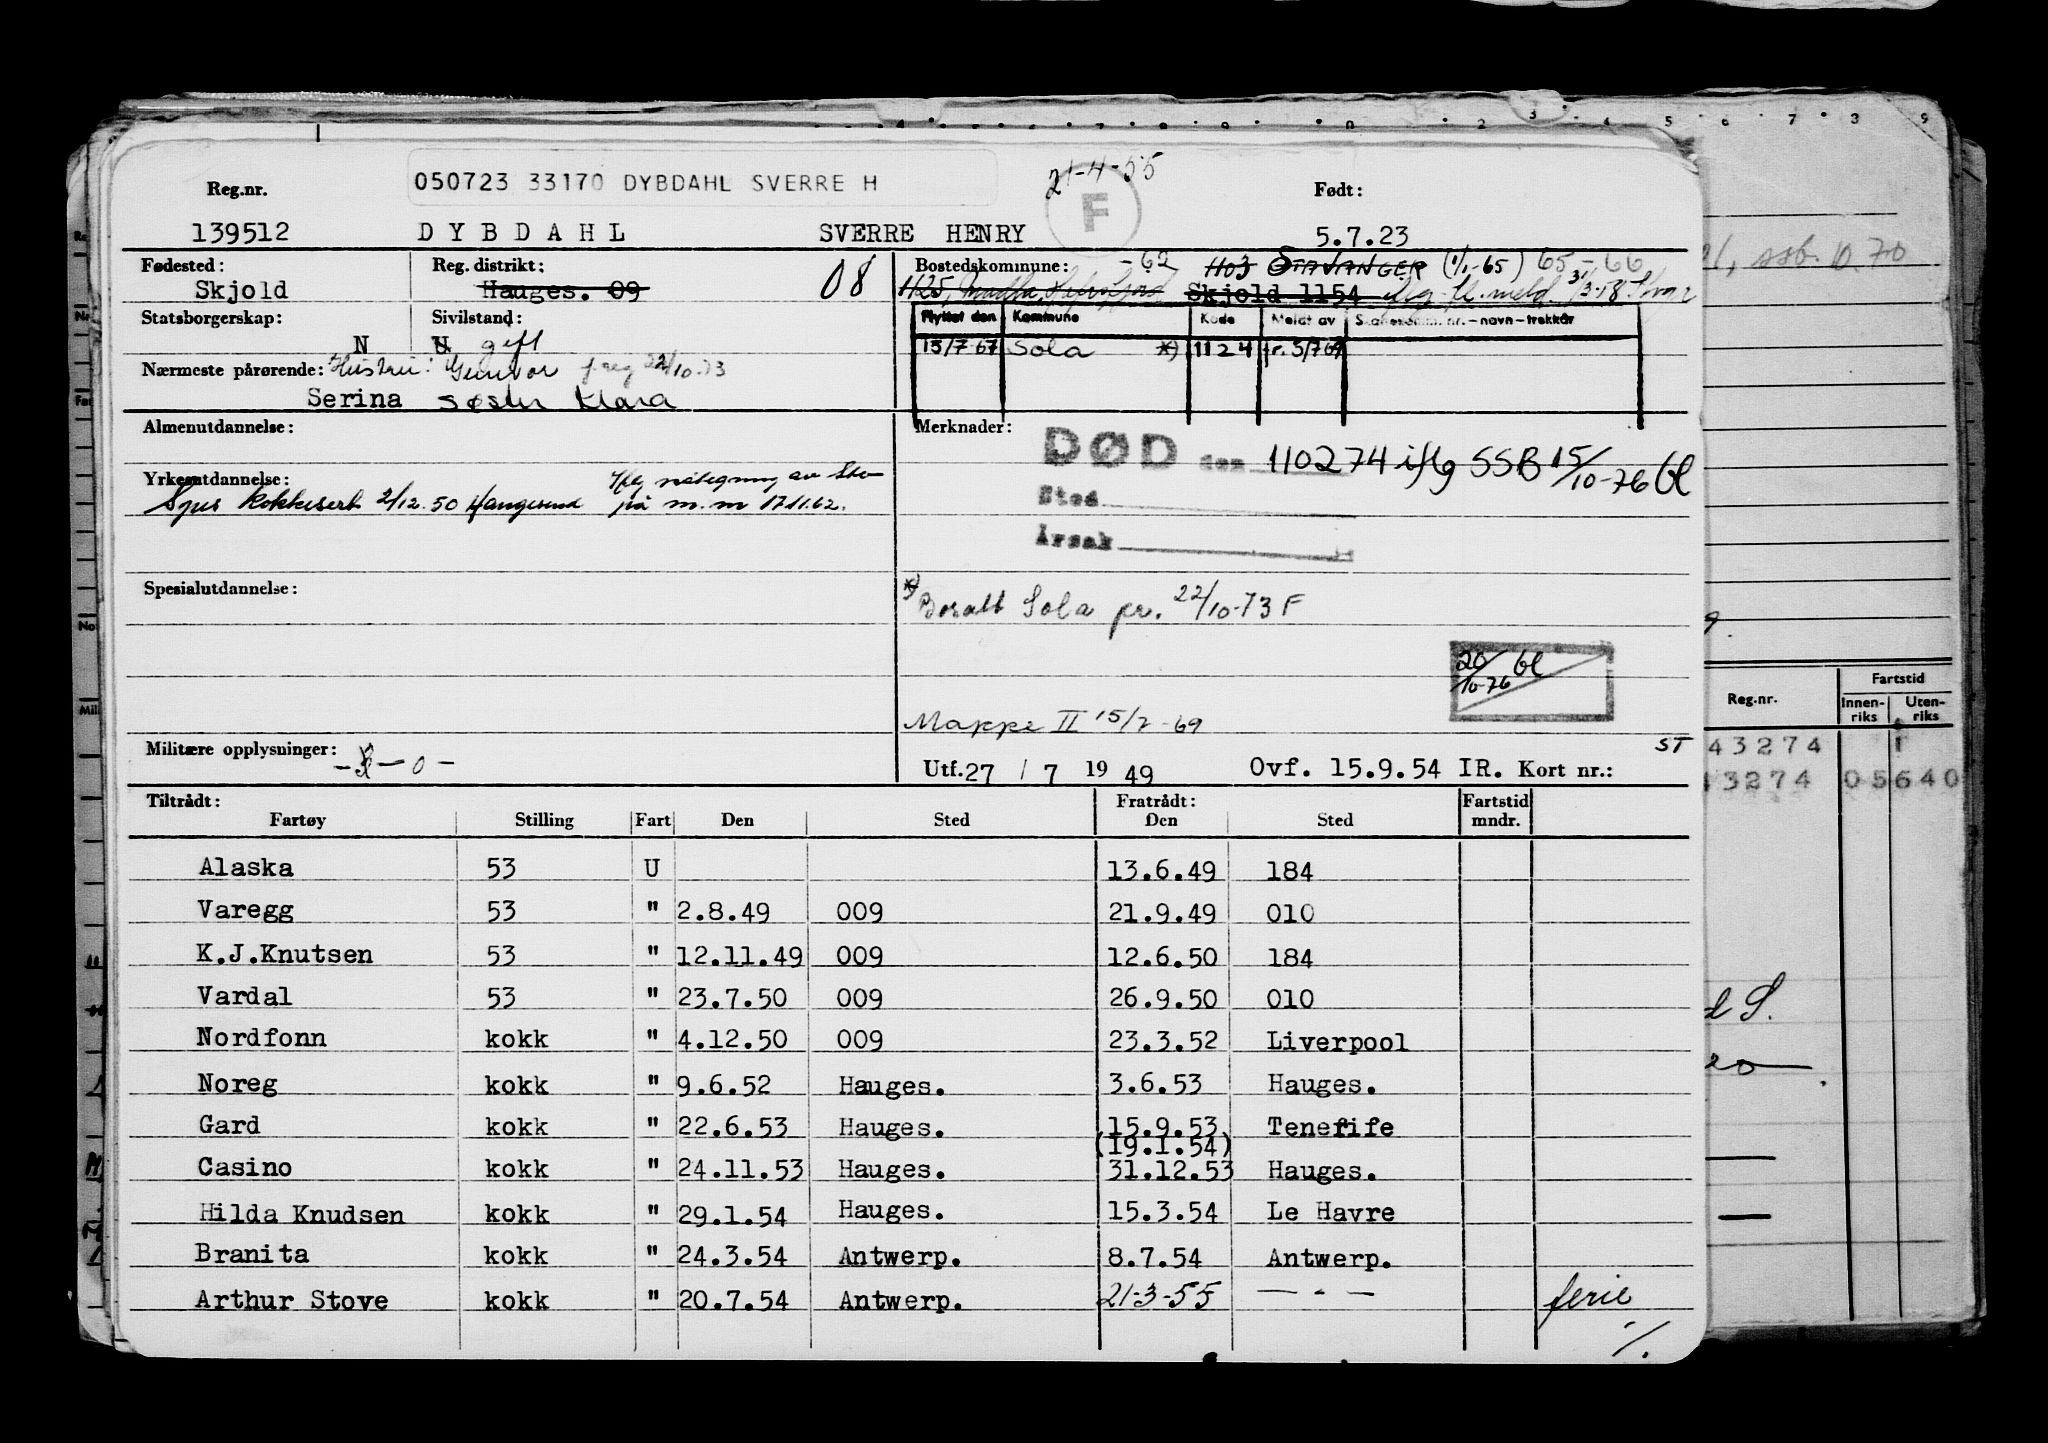 050723 33170 DYBDAHL SVERRE H
21-4-55
F
Reg.nr.
Født:
139512 DYBDAHL SVERRE HENRY 5.7.23
Fødested: Reg. distrikt: 08 Bostedskommune: -62 1103 STAVANGER (1/1-65) 65-66
Skjold Hauges. 09 1125, Skjold 1154
Statsborgerskap: Sivilstand:
Flyttet den Kommune Kode Meldt av
N U gift
15/7 67 Sola *) 1124 fr. 5/7 69
Nærmeste pårørende: Hustru: Gunvor freg 22/10-73
Serina søster Klara
Almenutdannelse: Merknader:
DØD den 110274 iflg SSB 15/10-76 bl
Yrkesutdannelse: Iflg påtegning av Sto
Sjus kokkesert 2/12.50 Haugesund på m.m 17.11.62.
Sted
Årsak
Spesialutdannelse:
*) Bosatt Sola pr. 22/10-73 F
20/10-76 bl
Mappe II 15/7-69
Militære opplysninger: - - 0 -
ST
Utf. 27 / 7 19 49 Ovf. 15.9.54 IR. Kort nr.:
Tiltrådt: Fratrådt: Fartstid
Fartøy Stilling Fart Den Sted Den Sted mndr.
Alaska 53 U 13.6.49 184
Varegg 53 " 2.8.49 009 21.9.49 010
K.J.Knutsen 53 " 12.11.49 009 12.6.50 184
Vardal 53 " 23.7.50 009 26.9.50 010
Nordfonn kokk " 4.12.50 009 23.3.52 Liverpool
Noreg kokk " 9.6.52 Hauges. 3.6.53 Hauges.
Gard kokk " 22.6.53 Hauges. 15.9.53 Tenefife
(19.1.54)
Casino kokk " 24.11.53 Hauges. 31.12.53 Hauges.
Hilda Knudsen kokk " 29.1.54 Hauges. 15.3.54 Le Havre
Branita kokk " 24.3.54 Antwerp. 8.7.54 Antwerp.
Arthur Stove kokk " 20.7.54 Antwerp. 21-3-55 — " — ferie
./.
ssb. 10.70
Fartstid
Reg.nr. Innen-riks Uten-riks
43274
43274 05640